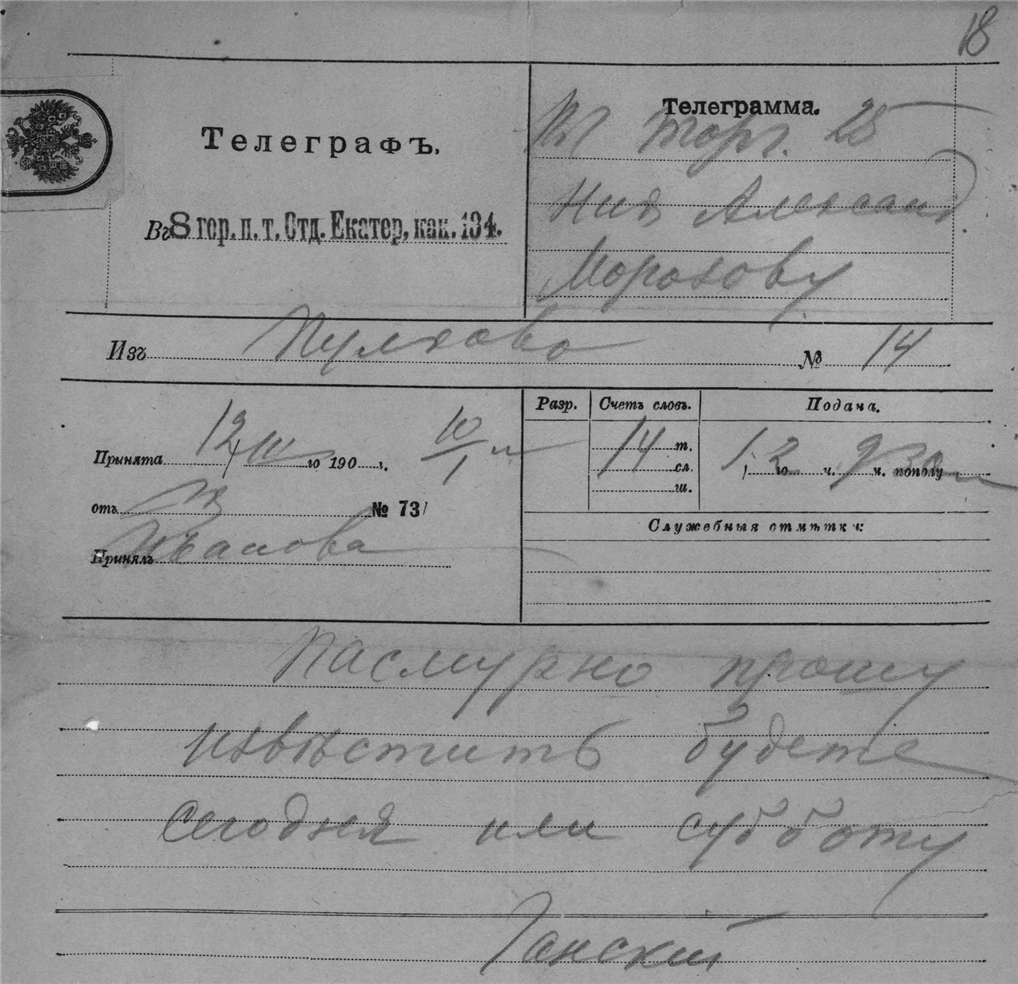 18
Телеграфъ.
Въ 8 гор. п. т. Отд. Екатер. кан. 134.
Телеграмма.
Торг. 25
Ник Александ
Морозову
Изъ Пулково № 14
Принята 12/III го 190 г. 10/1
отъ № 73
Принялъ Иванова
Разр. Счетъ словъ. Подана.
14 т.
сл.
ш.
12 го ч. 9 м. пополу
Служебныя отмѣтки:
Пасмурно прошу
извѣстить будете
сегодня или субботу
Ганский